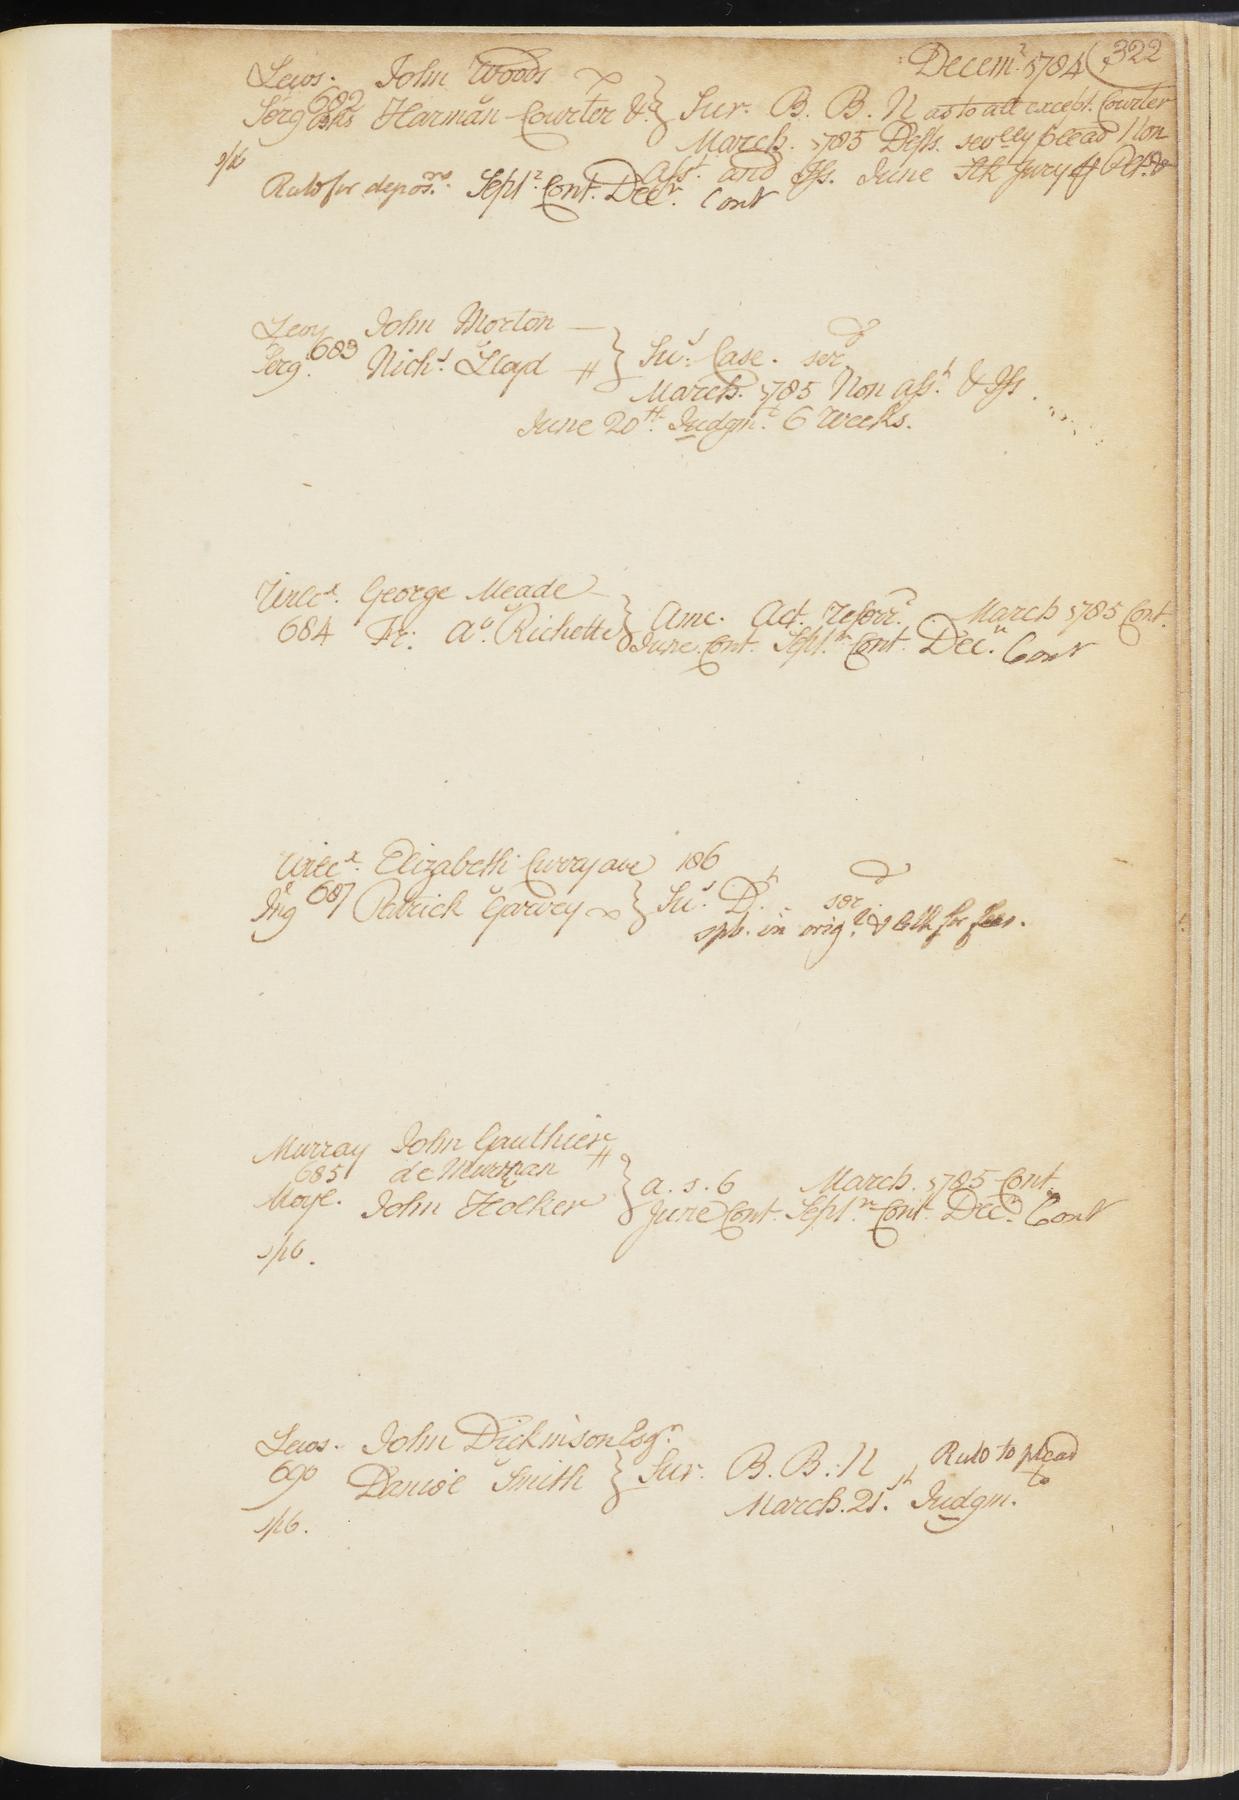 Decem.r 1784 (322
Lews. John Woods
Serg 682 Harman Courter &c } Sur. B. B. N as to all except Courter
March. 1785 Defts. sev.lly plead Non
s/b Asst. and Iss. June Stk Jury
Rule for depos.ns Sept.r Cont. Dec.r Cont
Levy John Morton
Serg. 683 Nich.s Lloyd } Su.s Case. ser
March. 1785 Non ass.t & Iss.
June 20th. Judgm.t 6 Weeks.
Wilc.x George Meade
684 Fr. A.s Richette } Ame. Act. referr.d March 1785 Cont.
June Cont. Sept.r Cont. Dec.r Cont
Wilc.x Elizabeth Curry 186
Ing 687 Patrick Garvey } Su.s D.t ser
spb. in orig.l & for fees.
Murray John Gauthier
685 de Murnan
Moyl. John Holker } a. s. 6 March. 1785 Cont.
June Cont. Sept.r Cont. Dec.r Cont
s/b.
Lews. John Dickinson Esq.r
690 Daniel Smith } Sur. B. B. N Rule to plead
March. 21st Judgm.t
s/b.